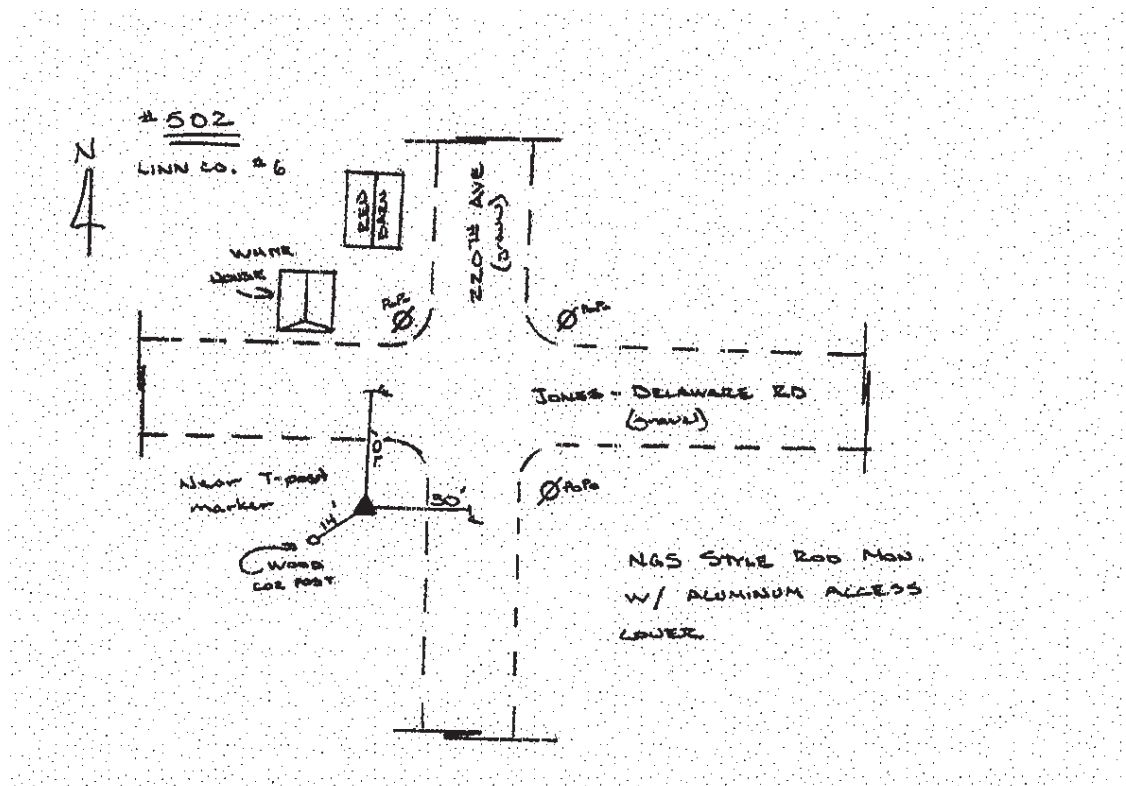 # 502
N
LINN CO. # 6
RED
BARN
220TH AVE
(gravel)
WHITE
HOUSE
PoPo
PoPo
JONES - DELAWARE RD
(gravel)
Near T-post
marker
50'
14'
PoPo
WOOD
COR POST.
NGS STYLE ROD MON.
W/ ALUMINUM ACCESS
COVER